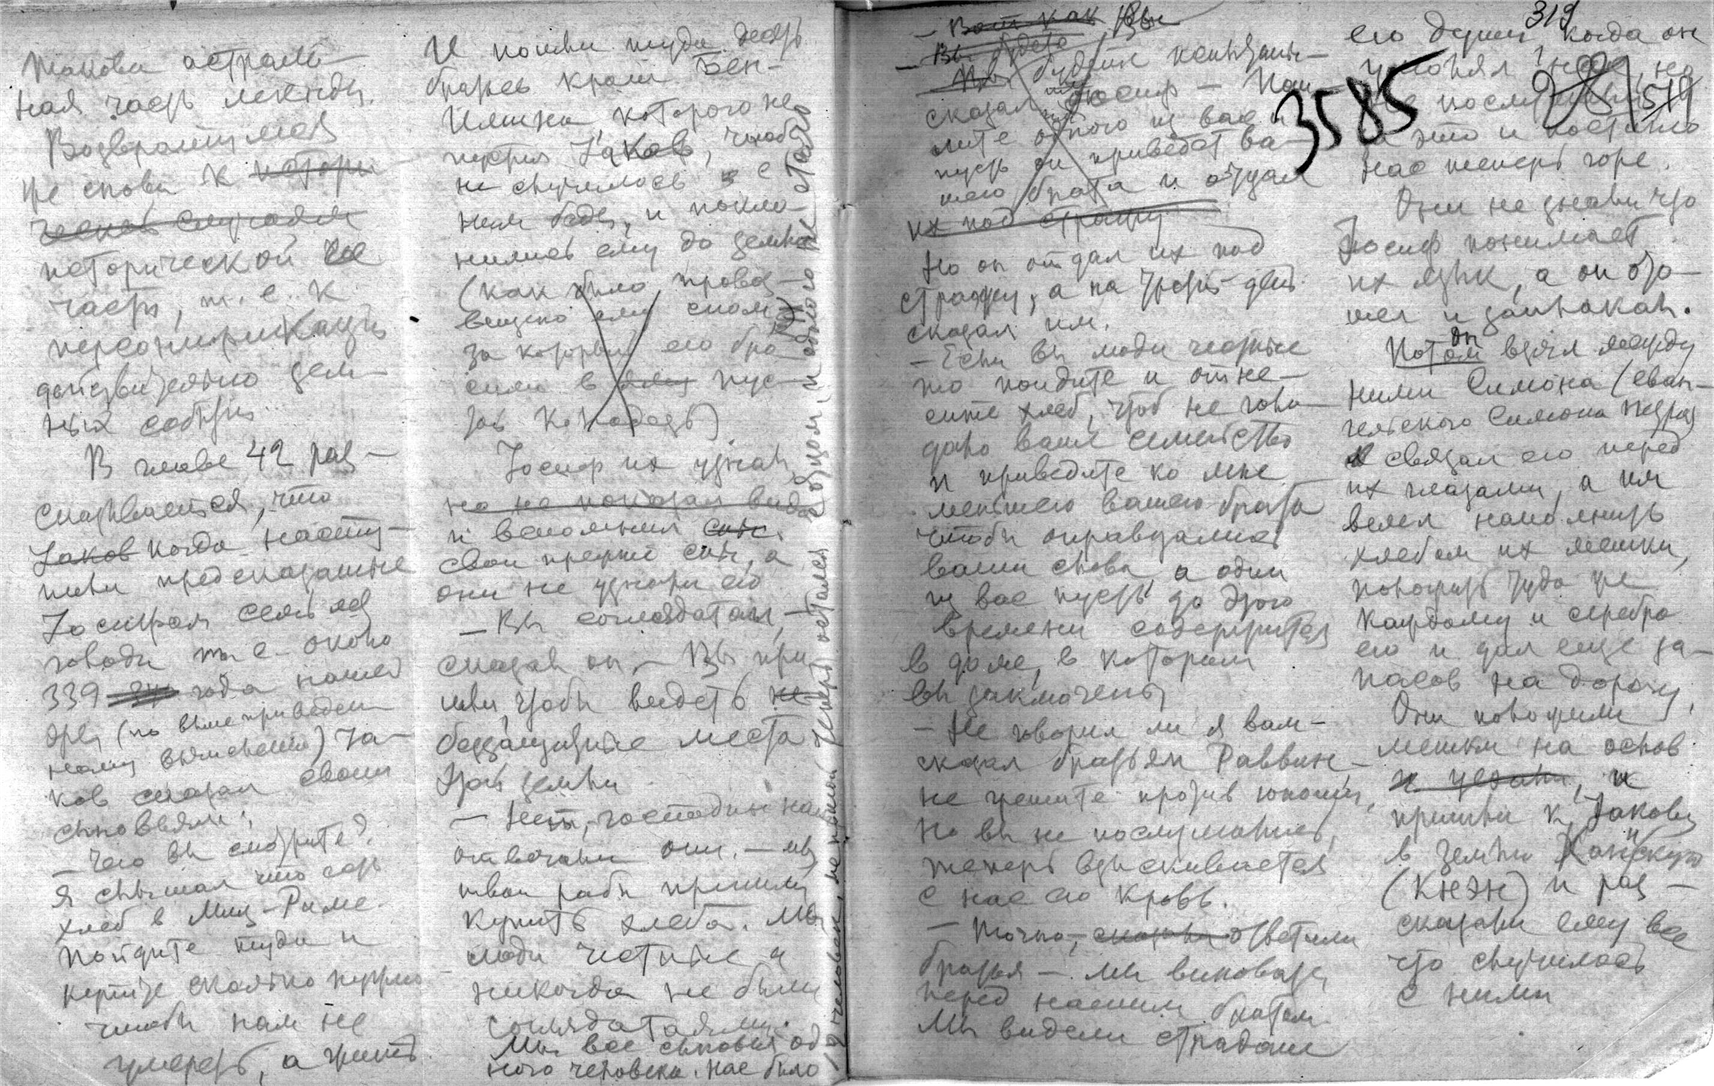 Такова астраль-
ная часть легенды.
Возвратимся
же снова к истори-
ческой
части, т. е. к
персонификации
действительно зем-
ных событий.
В главе 42 раз-
сказывается, что
Иаков когда насту-
пили предсказанные
Иосифом семь лет
голода т. е. около
339 года нашей
эры (по вышеприведен-
ному вычислению) Иа-
ков сказал своим
сыновьям:
— Чего вы смотрите?
Я слышал что есть
хлеб в Миц-Риме.
Пойдите туда и
купите сколько нужно
чтобы нам не
умереть, а жить
И пошли туда десять
братьев кроме Бен-
Имина, которого не
пустил Иаков, чтоб
не случилось с
ним беды, и покло-
нились ему до земли
(как было провоз-
вещено ему сном
за который его бро-
сили в яму пус-
той колодезь)
Иосиф их узнал
но не показал вида
и вспомнил сны
свои прежние сны, а
они не узнали его
— Вы соглядатаи, —
сказал он, — Вы при-
шли, чтобы видеть не
беззащитные места
этой земли
— Нет, господин наш
отвечали они. — мы
твои рабы пришли
купить хлеба. Мы
люди честные и
никогда не были
соглядатаями.
Мы все сыновья од-
ного человека. Нас было
12 человек, меньший теперь остался с отцом, и одного не стало
— Вот как Вы
— Вы будете
Вы будете испытаны —
сказал Иосиф — Пош-
лите одного из вас и
пусть он приведет ва-
шего брата и отдал
их под стражу
Но он отдал их под
стражу, а на третий день
сказал им.
— Если вы люди честные
то пойдите и отне-
сите хлеб, чтоб не голо-
дало ваше семейство
и приведите ко мне
меньшего вашего брата
чтобы оправдались
ваши слова, а один
из вас пусть до этого
времени содержится
в доме, в котором
вы заключены
— Не говорил ли я вам —
сказал братьям Раввин, —
не грешите против юноши,
но вы не послушались,
теперь взыскивается
с нас его кровь.
— Точно, сказали ответили
братья — мы виноваты
перед нашим братом
Мы видели страдание
319
3585
281
514
его души когда он
умолял нас, но
не послушали
за это и постигло
нас теперь горе.
Они не знали что
Иосиф понимает
их язык, а он ото-
шел и заплакал.
Потом он взял между
ними Симона (еван-
гельского Симона Петра)
и связал его перед
их глазами, а им
велел наполнить
хлебом их мешки,
положить туда же
каждому и серебро
его и дал еще за-
пасов на дорогу,
Они положили
мешки на ослов
и уехали, и
пришли к Иакову
в землю Ханскую
(КНЭН) и раз-
сказали ему все
что случилось
с ними